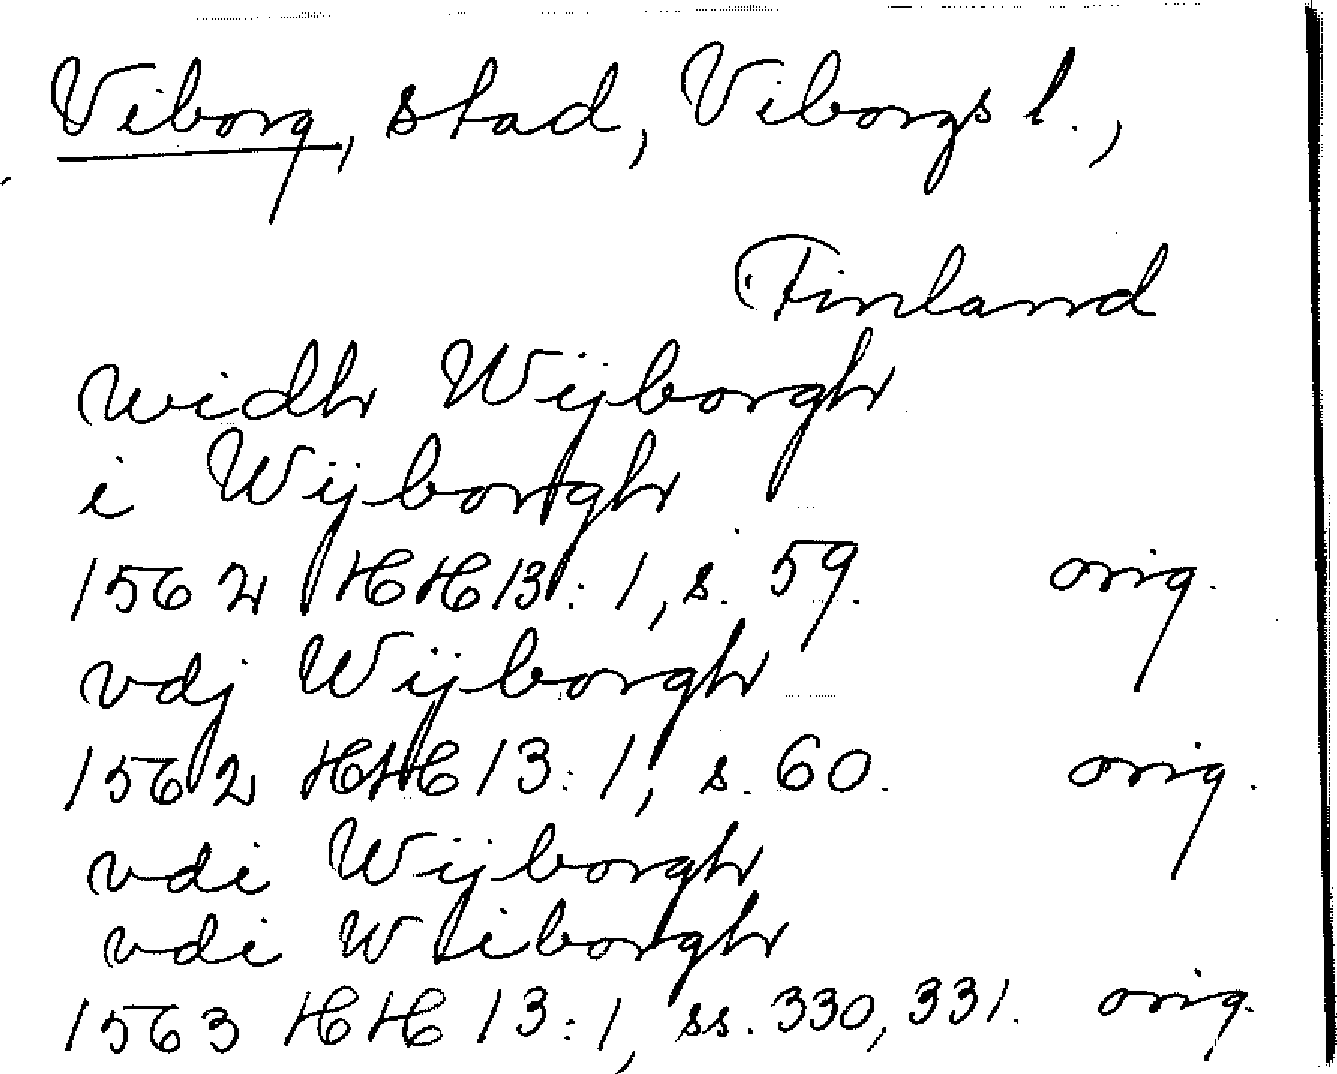 Viborg, stad, Viborgs l.,
Finland
widh Wijborgh
i Wijborgh
1562 HH 13:1, s. 59. orig.
vdj Wijborgh
1562 HH 13:1, s. 60. orig.
vdi Wijborgh
vdi Wiborgh
1563 HH 13:1, ss. 330, 331. orig.